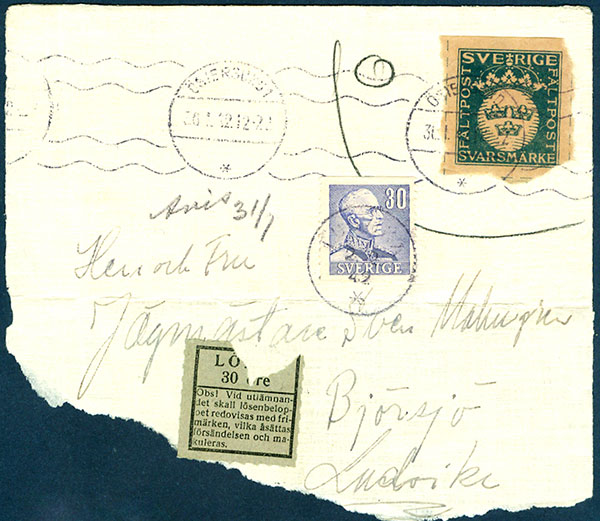 SVERIGE
FÄLTPOST
FÄLTPOST
SVARSMÄRKE
30
SVERIGE
Avis 31/1
Herr och Fru
Jägmästare Sven Malmgren
Björsjö
Ludvika
LÖ
30 öre
Obs! Vid utlämnan-
det skall lösenbelop-
pet redovisas med fri-
märken, vilka åsättas
försändelsen och ma-
kuleras.